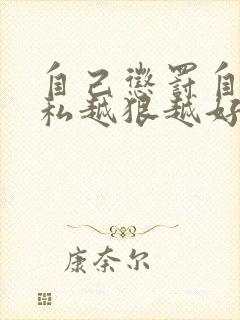 自己懲罰自
私越狠越好
康奈尔